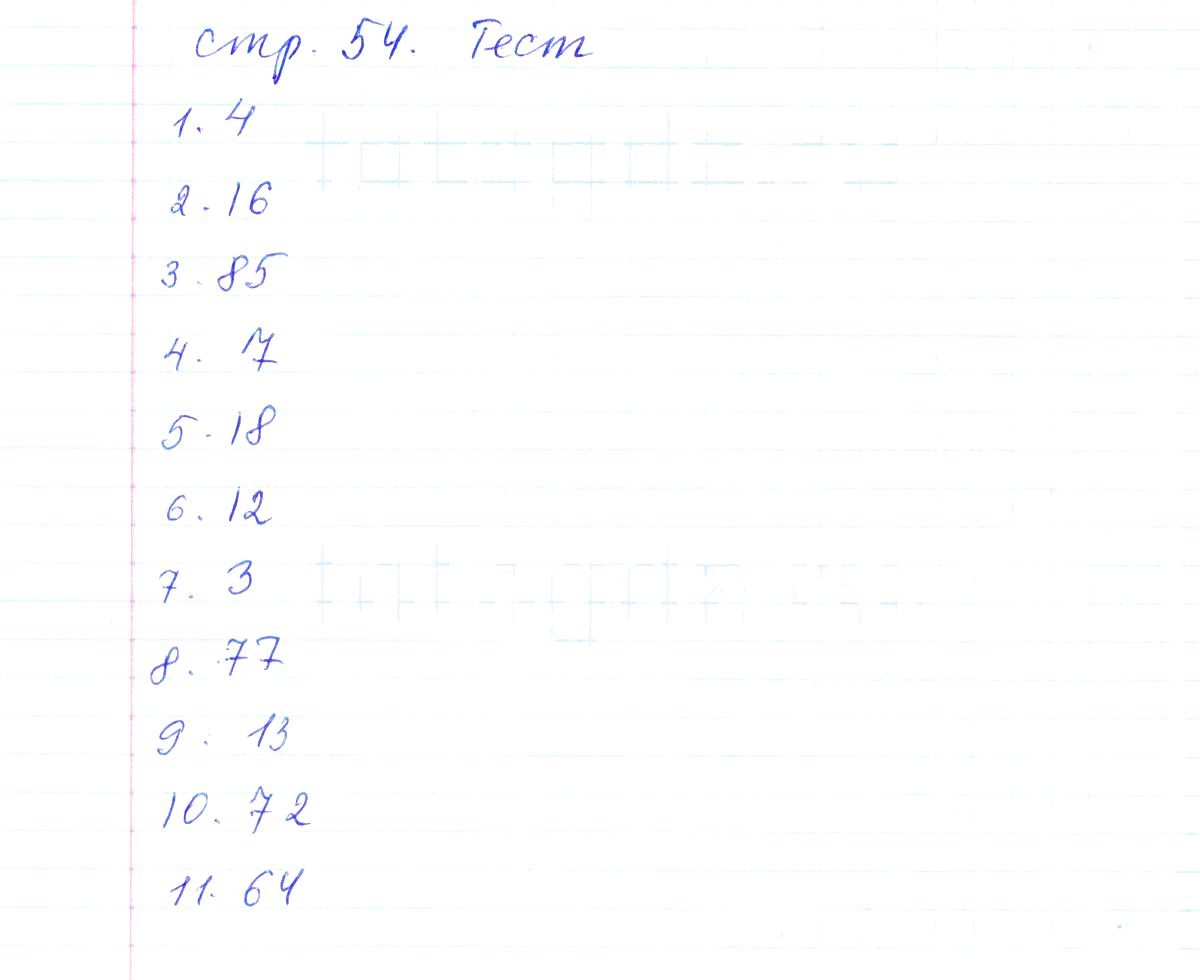 стр. 54. Тест
1. 4
2. 16
3. 85
4. 7
5. 18
6. 12
7. 3
8. 77
9. 13
10. 72
11. 64